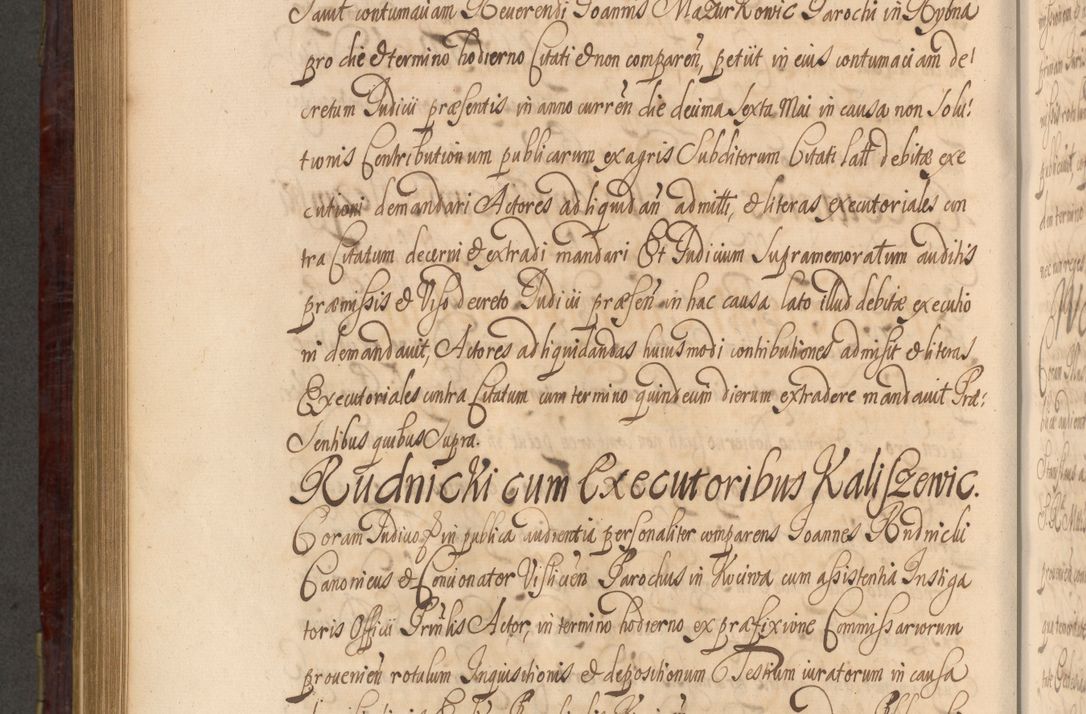 savit contumaciam Reverendi Joannis Mazurkowic Parochi in Rybna
pro die et termino hodierno Citati et non comparen, petiit in eius contumaciam de
cretum Judicii præsentis in anno curren die decima sexta Mai in causa non solu:
tionis Contributionum publicarum ex agris Subditorum Citati latt debitæ exe
cutioni demandari Actores ad liquidan admitti, et literas executoriales con
tra Citatum decerni et extradi mandari Et Judicium supramemoratum auditis
præmissis et Viso decreto Judicii præsen in hac causa lato illud debitæ executio
ni demandavit, Actores ad liquidandas huiusmodi contributiones admisit et literas
Executoriales contra Citatum cum termino quindecim dierum extradere mandavit Præ:
sentibus quibus supra.
Rudnicki cum Executoribus Kaliszewic.
Coram Judicio in publica audientia personaliter comparens Joannes Rudnicki
Canonicus et Concionator Vislicien Parochus in Kociwa cum assistentia Instiga
toris Officii Prinlis Actor, in termino hodierno ex præfixione Commissariorum
provenien rotulum Inquisitionis et depositionum Testium iuratorum in causa